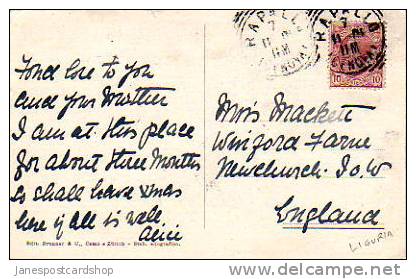 Fond love to you
and your Mother
I am at this place
for about three Months
so shall leave xmas
here if all is well,
Alice
Edit. Brunner & C., Como e Zürich - Stab. eliografico.
RAPALLO
7
11 M
(GENOVA)
RAPALLO
7
11 M
(GENOVA)
10 10
Miss Mackett
Winford Farm
Newchurch. I.o.W
England
LIGURIA
Janespostcardshop
http://www.delcampe.net